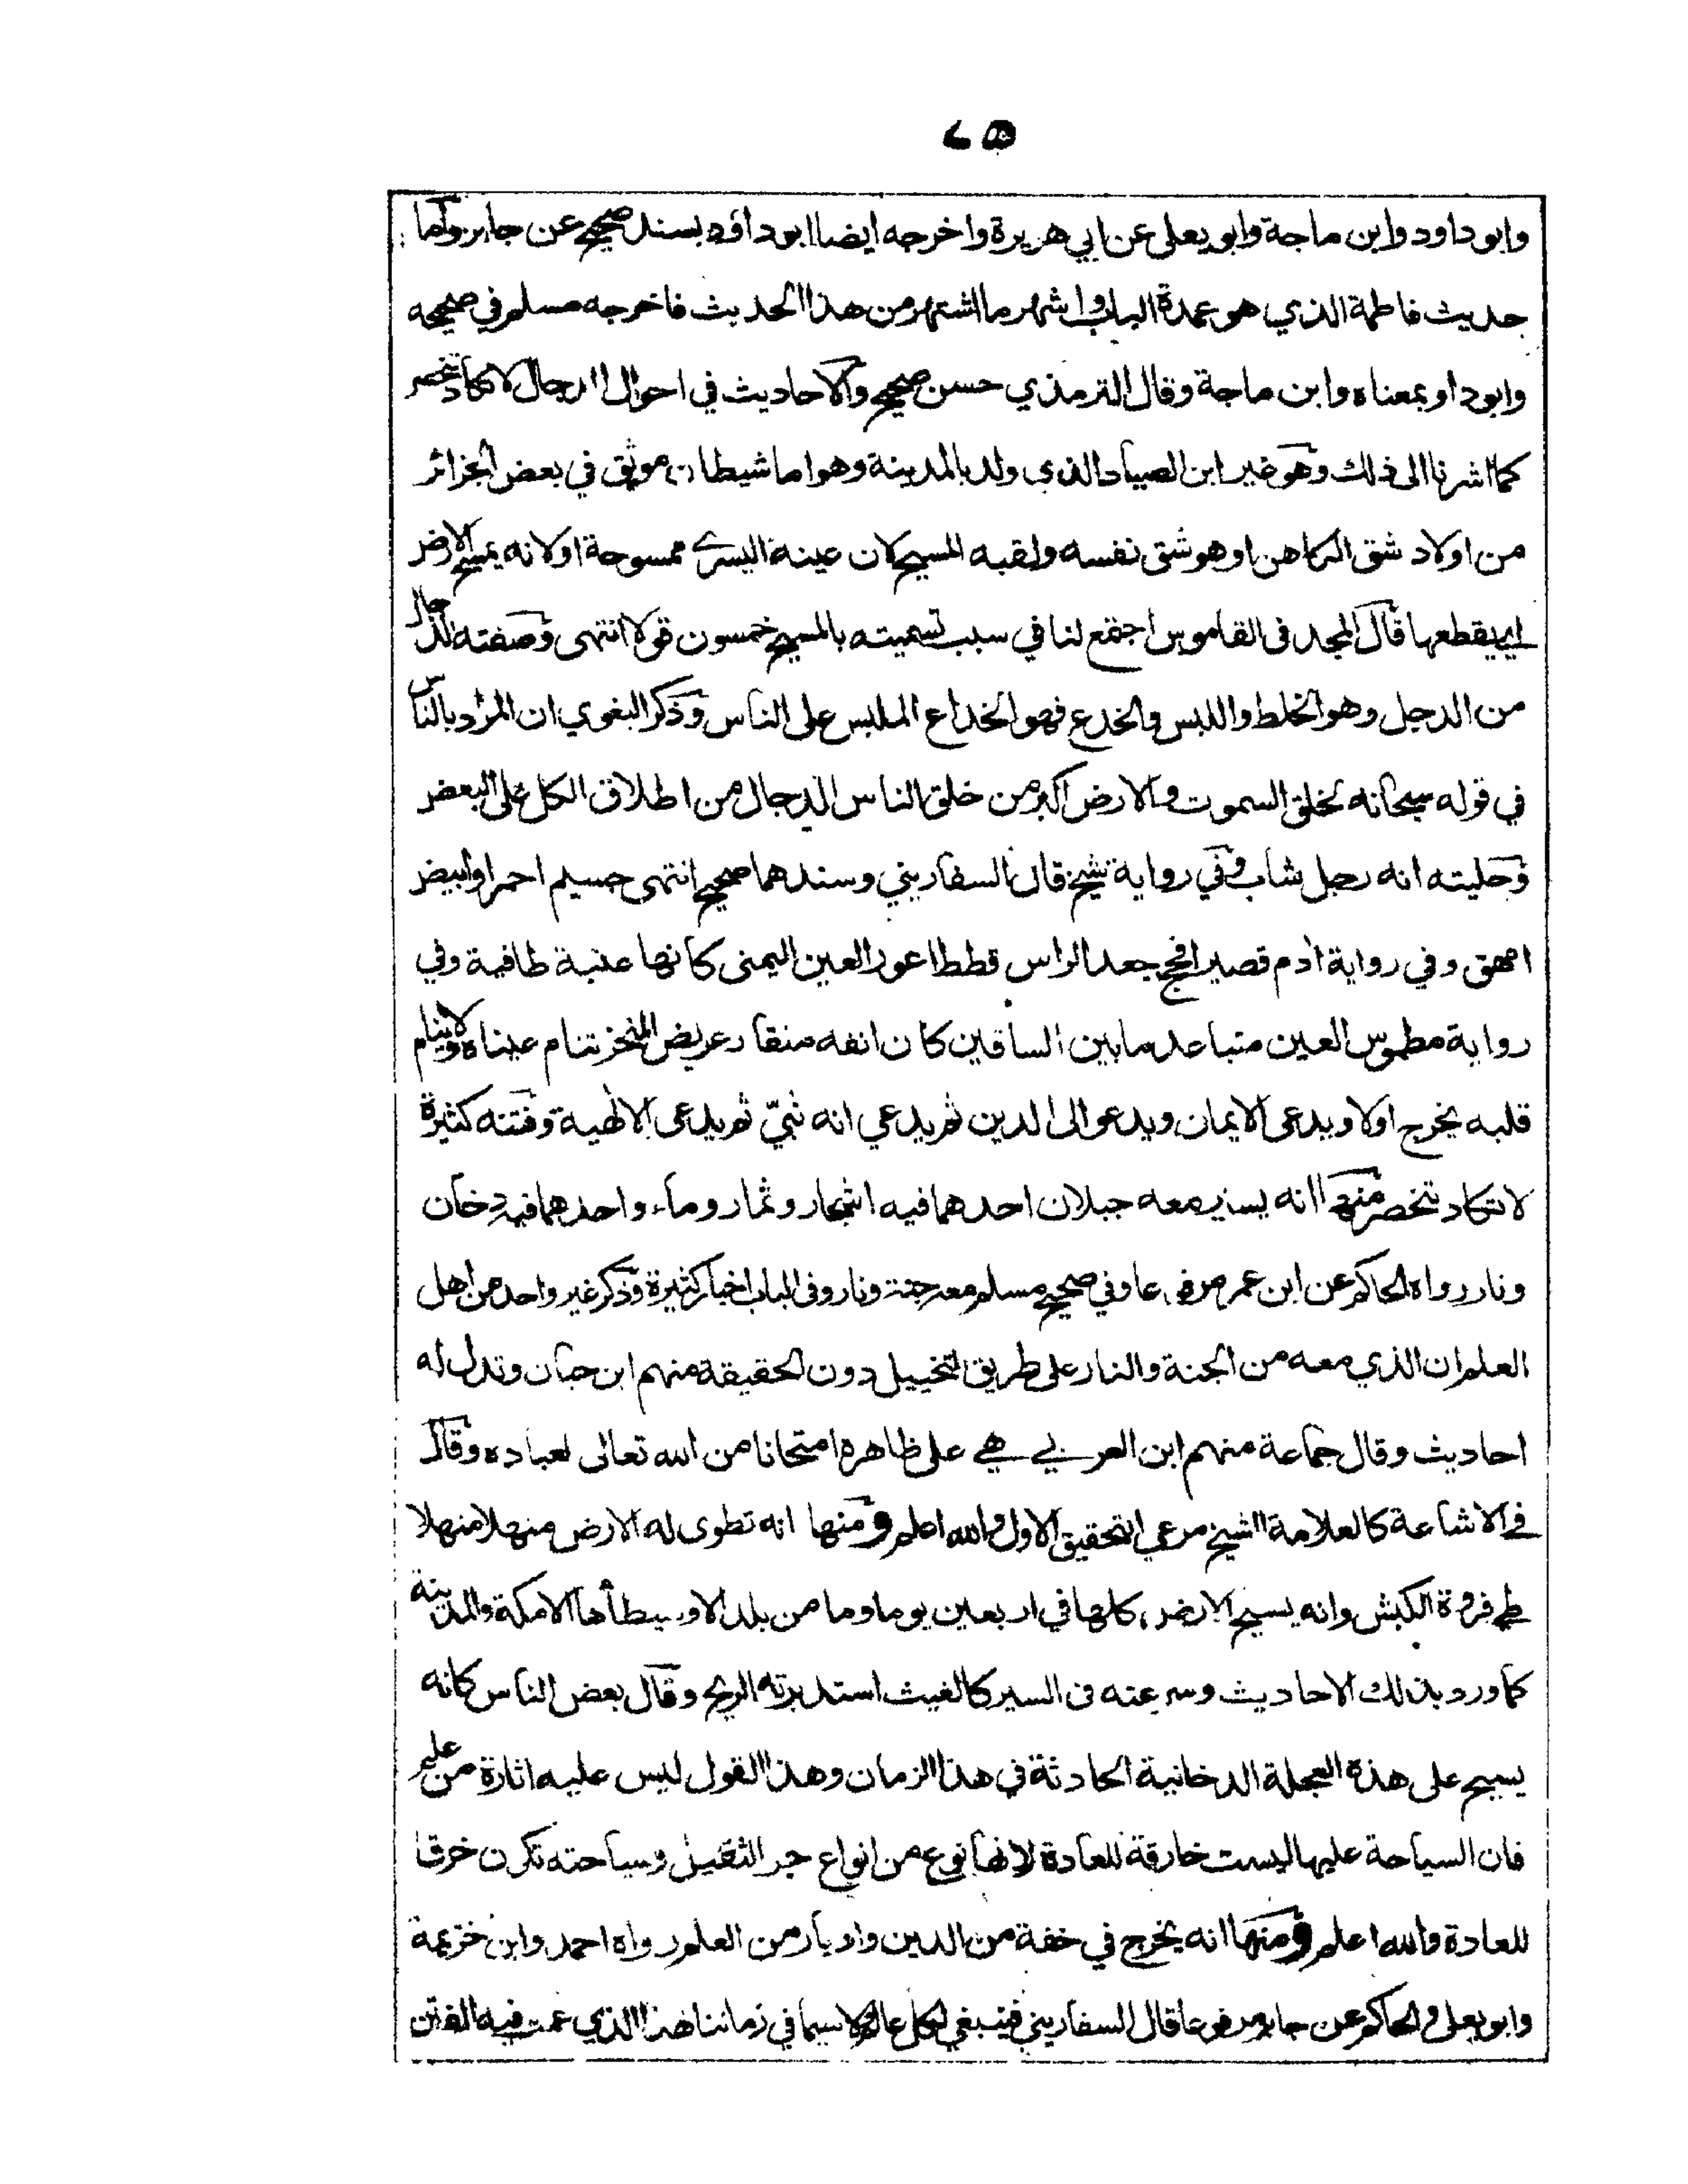 وابو داود وابن ماجة وابو يعلى عن ابي هريرة واخرجه ايضا ابو داؤد بسند صحيح عن جابر واما
حديث فاطمة الذي هو عمدة الباب واشهر ما اشتهر من هذا الحديث فاخرجه مسلم في صحيحه
وابو داو بمعناه وابن ماجة وقال الترمذي حسن صحيح والاحاديث في احوال الدجال لا تكاد تنحصر
كما اشرنا الى ذلك وهو غير ابن الصياد الذي ولد بالمدينة وهو اما شيطان موثق في بعض الجزائر
من اولاد شق الكاهن او هو شق نفسه ولقبه المسيح لان عينه اليسرى ممسوحة او لانه يمسح الارض
اي يقطعها قال المجد في القاموس اجتمع لنا في سبب تسميته بالمسيح خمسون قولا انتهى وصفته الدجال
من الدجل وهو الخلط واللبس والخدع فهو الخداع الملبس على الناس وذكر البغوي ان المراد بالناس
في قوله سبحانه لخلق السموت والارض اكبر من خلق الناس الدجال من اطلاق الكل على البعض
وحليته انه رجل شاب وفي رواية شيخ قال السفاريني وسندهما صحيح انتهى جسيم احمر او ابيض
امهق وفي رواية ادم قصير افحج جعد الراس قطط اعور العين اليمنى كانها عنبة طافية وفي
رواية مطموس العين متباعد ما بين الساقين كان انفه منقار عريض المنخر تنام عيناه ولا ينام
قلبه يخرج اولا ويدعى الايمان ويدعو الى الدين ثم يدعي انه نبيّ ثم يدعى الالهية وفتنه كثيرة
لا تكاد تنحصر منها انه يسير معه جبلان احدهما فيه اشجار وثمار وماء واحدهما فيه دخان
ونار رواه الحاكم عن ابن عمر مرفوعا وفي صحيح مسلم معه جنة ونار وفي الباب اخبار كثيرة وذكر غير واحد من اهل
العلم ان الذي معه من الجنة والنار على طريق التخييل دون الحقيقة منهم ابن حبان وتدل له
احاديث وقال جماعة منهم ابن العربي هي على ظاهره امتحانا من الله تعالى لعباده وقال
في الاشاعة كالعلامة الشيخ مرعي التحقيق الاول والله اعلم ومنها انه تطوى له الارض منهلا منهلا
طي فروة الكبش وانه يسيح الارض كلها في اربعين يوما وما من بلد الا وسيطأها الا مكة والمدينة
كما ورد بذلك الاحاديث وسرعته في السير كالغيث استدبرته الريح وقال بعض الناس كانه
يسيح على هذه العجلة الدخانية الحادثة في هذا الزمان وهذا القول ليس عليه اثارة من علم
فان السياحة عليها ليست خارقة للعادة لانها نوع من انواع جر الثقيل وسياحته تكون خرقا
للعادة والله اعلم ومنها انه يخرج في خفة من الدين وادبار من العلم رواه احمد وابن خزيمة
وابو يعلى والحاكم عن جابر مرفوعا قال السفاريني فينبغي لكل عالم لا سيما في زماننا هذا الذي عمت فيه الفتن